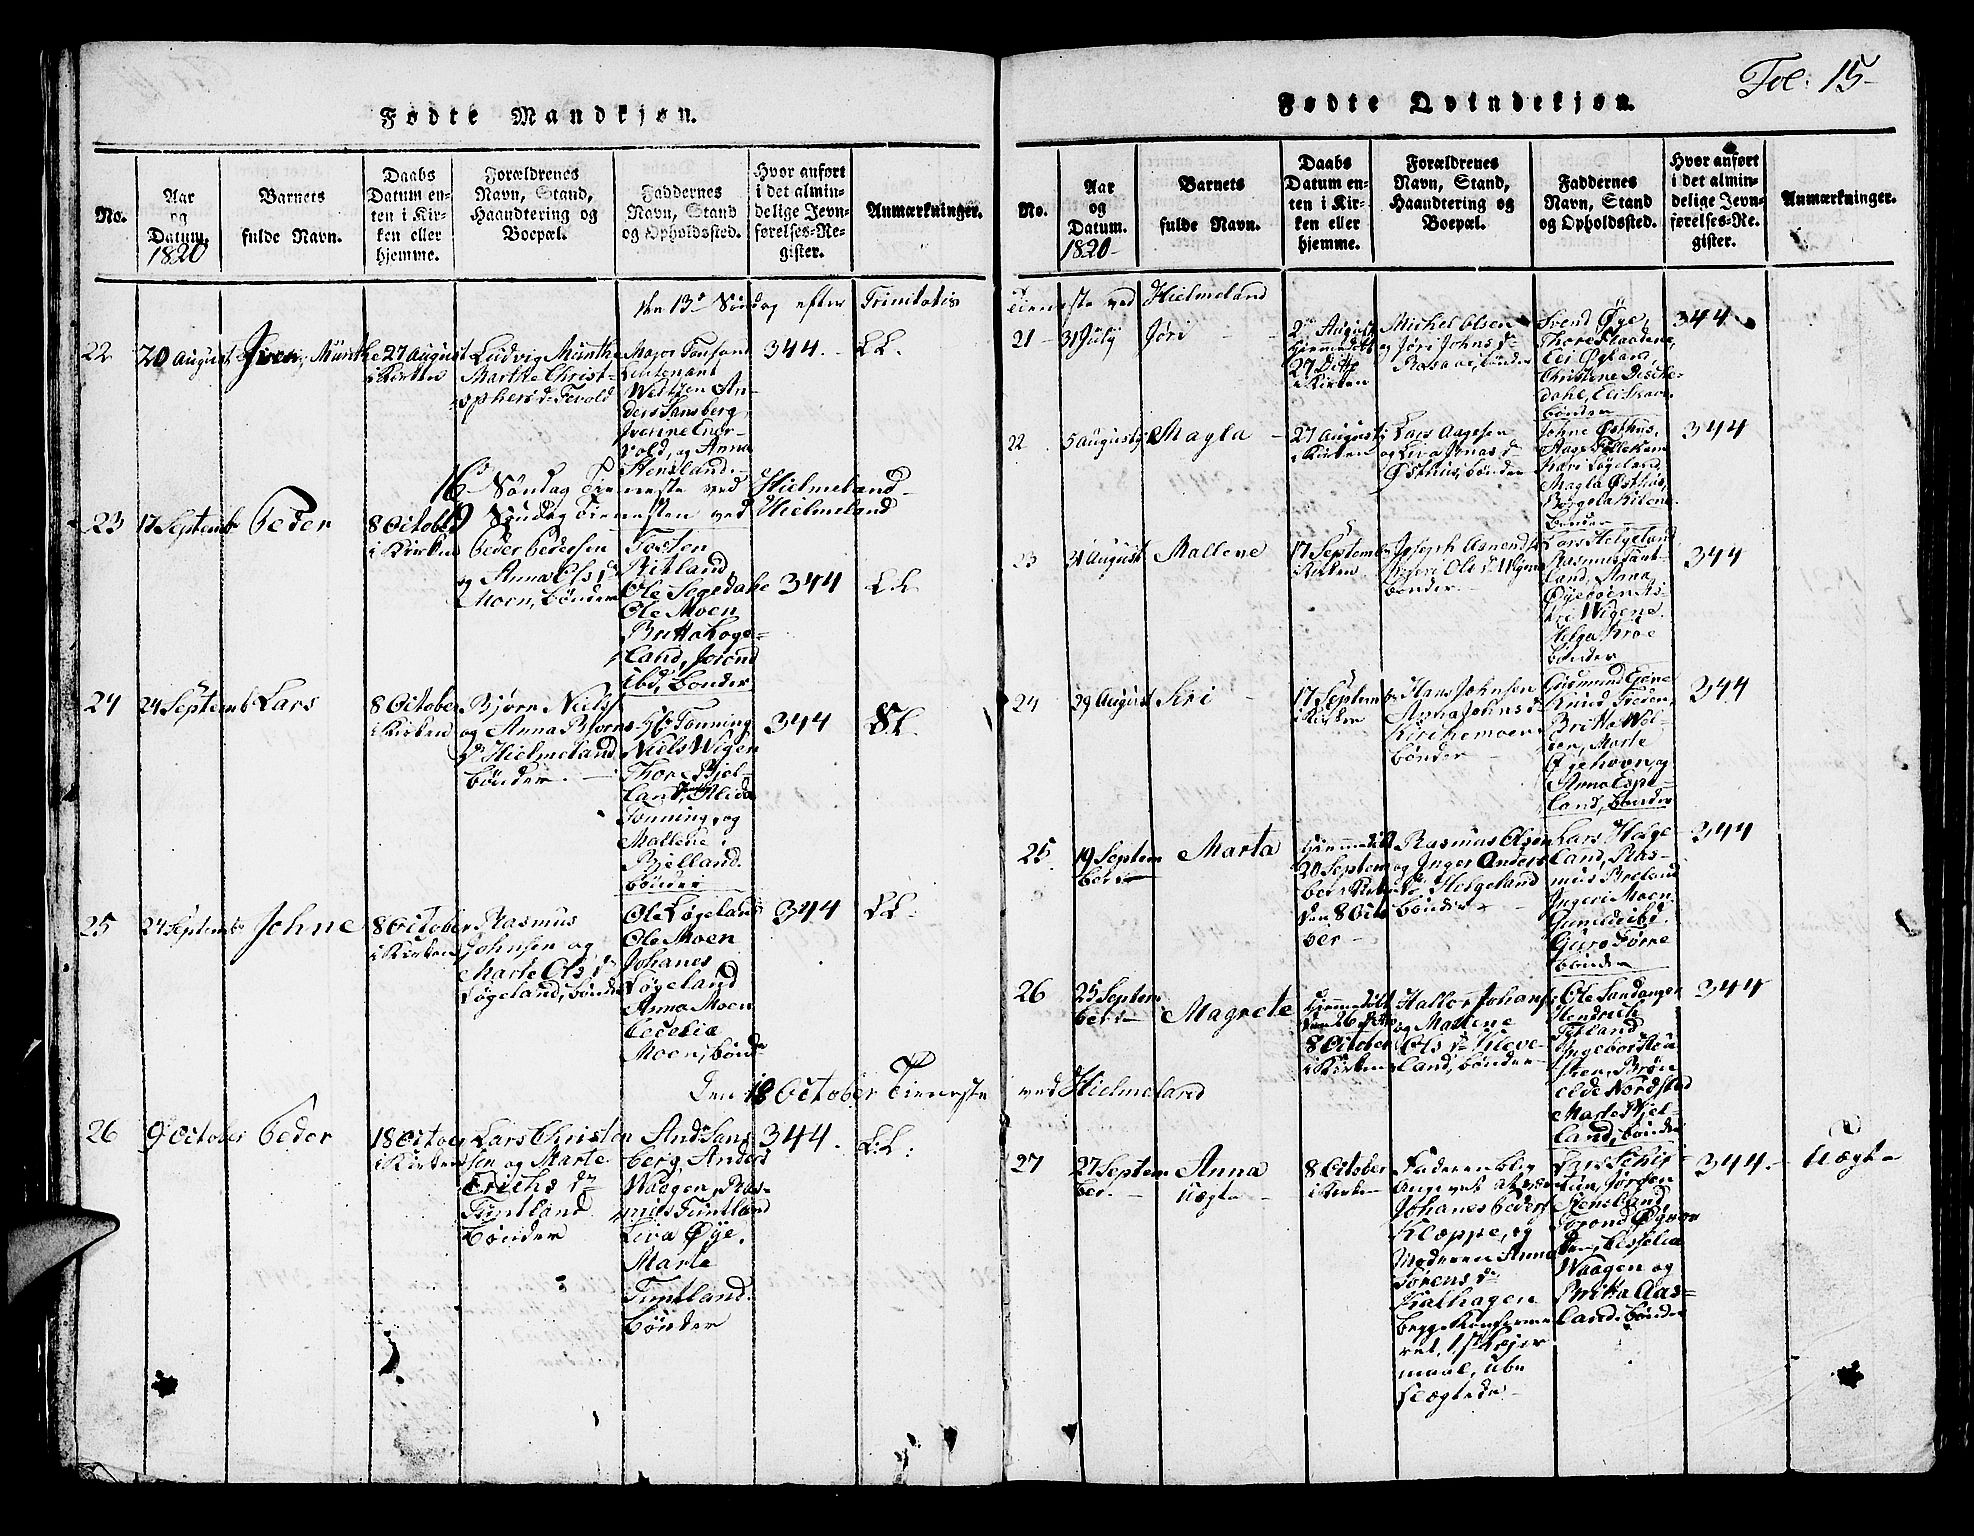 Fødte Mandkjøn.
No.
Aar
og
Datum.
1820
Barnets
fulde Navn.
Daabs
Datum en-
ten i Kir-
ken eller
hjemme.
Forældrenes
Navn, Stand,
Haandtering og
Boepæl.
Faddernes
Navn, Stand
og Opholdssted.
Hvor anført
i det almin-
delige Jevn-
førelses-Re-
gister.
Anmærkninger.
den 13de Søndag efter Trinitatis
22
20 August
Iver Münthe
27 August
i Kirken
Ludvig Münthe
Marthe Christ-
ophersd. Tevold
Major
Lieutenant
Weltzen An-
ders Sansberg,
Iverine
vold, og Anna
Stensland
344.
LL.
16 Søndag Tieneste ved Hielmeland
Søndag Tienesten ved Hielmeland
23
17 Septemb
Peder
8 October
i Kirken
Peder Pedersen
og Anna Olsd.
Moen, bønder
Tosten
Ritland,
Ole Segedahl
Ole Moen
Britta Løge-
land,
ibd, bønder
344
LL
24
24 Septemb
Lars
8 October
i Kirken
Bjørn Niels
og Anna
Hielmeland
bønder
Tønning
Niels Wigen
Thore Bjel-
land,
Tønning, og
Mallene
Bjelland
bønder
344
LL.
25
24 Septemb
Johne
8 October
i Kirken
Rasmus
Johnsen og
Marte Olsd.
Løgeland, bønder
Ole Løgeland
Ole Moen
Johanes
Løgeland
Anna Moen
Cecelia
Moen, bønd
344
LL.
Den 18 October Tieneste
26
9 October
Peder
18 Octob
i Kirken
Lars Christen
sen og Marte
Erichsd.
Timtland
bønder
And Sans
berg, Anders
Waagen, Ras-
mus Timtland
Liva Øye,
Marte
Timtland.
bønder
344.
LL.
Fol. 15
Fødte Qvindekjøn.
No.
Aar
og
Datum.
1820
Barnets
fulde Navn.
Daabs
Datum en-
ten i Kir-
ken eller
hjemme.
Forældrenes
Navn, Stand,
Haandtering og
Boepæl.
Faddernes
Navn, Stand
og Opholdssted.
Hvor anført
i det almin-
delige Jevn-
førelses-Re-
gister.
Anmærkninger.
Tieneste ved Hielmeland
21
31 July
Jøri
2 August
hjemmedøbt
27 Ditto
i Kirken
Michel Olsen
og Jøri Johnsd
bønder
Svend Øye,
Thore
Eli Øyland,
Christine
dahl, Eli
bønder
344
22
5 August
Magla
27 August
i Kirken
Lars Aagesen
og Liva Jonasd
Østhus, bønder
Johne Østhus,
Aage
Kari Løgeland,
Magla Østhus,
Borgela Kilene
bønder
344
23
31 August
Mallene
17 Septemb
i Kirken
Joseph
Ingeri Olsd Wigen
bønder
Lars Helgeland
Rasmus
land, Anna
Øyeboen,
Wigene
Helga Kroe
bønder
344
24
29 August
Siri
17 Septemb
i Kirken
Hans Johnsen
Anna Johnsd
Kirkemoen
bønder
Gudmund
Knud
Britte
Marte
Øyehovn, og
Anna Espe-
land, bønder
344
25
19 Septem
ber
Marta
hjemmedøbt
20 Septem
ber i Kirken
den 8 Octo
ber
Rasmus Olsen
og Inger Anders
d. Helgeland
bønder
Lars Helge
land, Ras-
mus Breland
Ingeri Moen
Gunild ibd.
Guro Førre
bønder
344
26
25 Septem
ber
Magrete
hjemmedøbt
den 26 Ditto
8 October
i Kirken
Hallor Johans
og Mallene
Olsd
land, bønder
Ole Sandanger
Hendrich
Tetland
Ingebor
elde Nordsted
Marte Bjel-
land, bønder
344
ved Hielmeland
27
27 Septem
ber
Anna
Uægte
8 October
i Kirken
Faderen blev
angivet at være
Johanes Peders
Kleppe, og
Moderen Anna
Tørensd.
Kalhagen
begge Konfirme
ret, 1ste Lejer
maal, ube
slægtede
Lars
Jørgen
Steneland
Trond
Cesselia
Waagen og
Britta Aas-
land. bønder
344.
Uægte